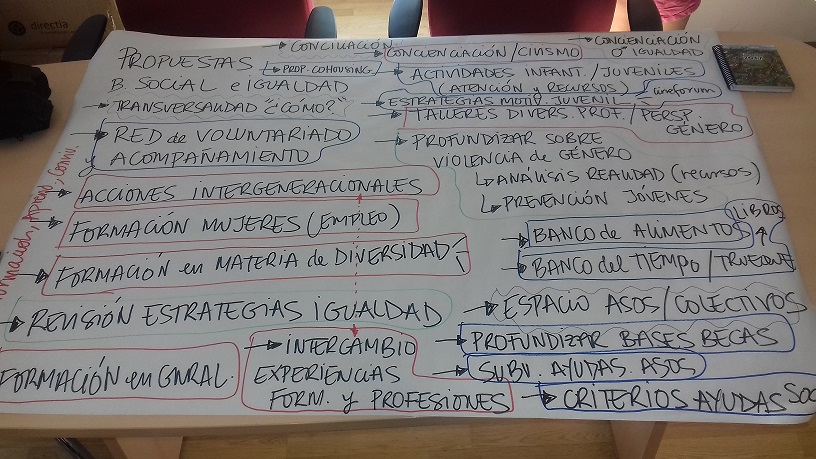 directia
PROPUESTAS
B. SOCIAL e IGUALDAD
TRANSVERSALIDAD "¿CÓMO?"
RED de VOLUNTARIADO
ACOMPAÑAMIENTO
ACCIONES INTERGENERACIONALES
FORMACIÓN MUJERES (EMPLEO)
FORMACIÓN en MATERIA de DIVERSIDAD
REVISIÓN ESTRATEGIAS IGUALDAD
FORMACIÓN en GNRAL.
INTERCAMBIO
EXPERIENCIAS
FORM. y PROFESIONES
CONCILIACIÓN
PROP. COHOUSING
CONCIENCIACIÓN/CIVISMO
CONCIENCIACIÓN
IGUALDAD
ACTIVIDADES INFANT./JUVENILES
(ATENCIÓN y RECURSOS)
ESTRATEGIAS MOTIV. JUVENIL
cineforum
TALLERES DIVERS. PROF./PERSP.
GÉNERO
PROFUNDIZAR SOBRE
VIOLENCIA de GÉNERO
ANÁLISIS REALIDAD (recursos)
PREVENCIÓN JÓVENES
BANCO de ALIMENTOS
LIBROS
BANCO del TIEMPO/TRUEQUE
ESPACIO ASOS/COLECTIVOS
PROFUNDIZAR BASES BECAS
SUBV. AYUDAS ASOS
CRITERIOS AYUDAS SOC